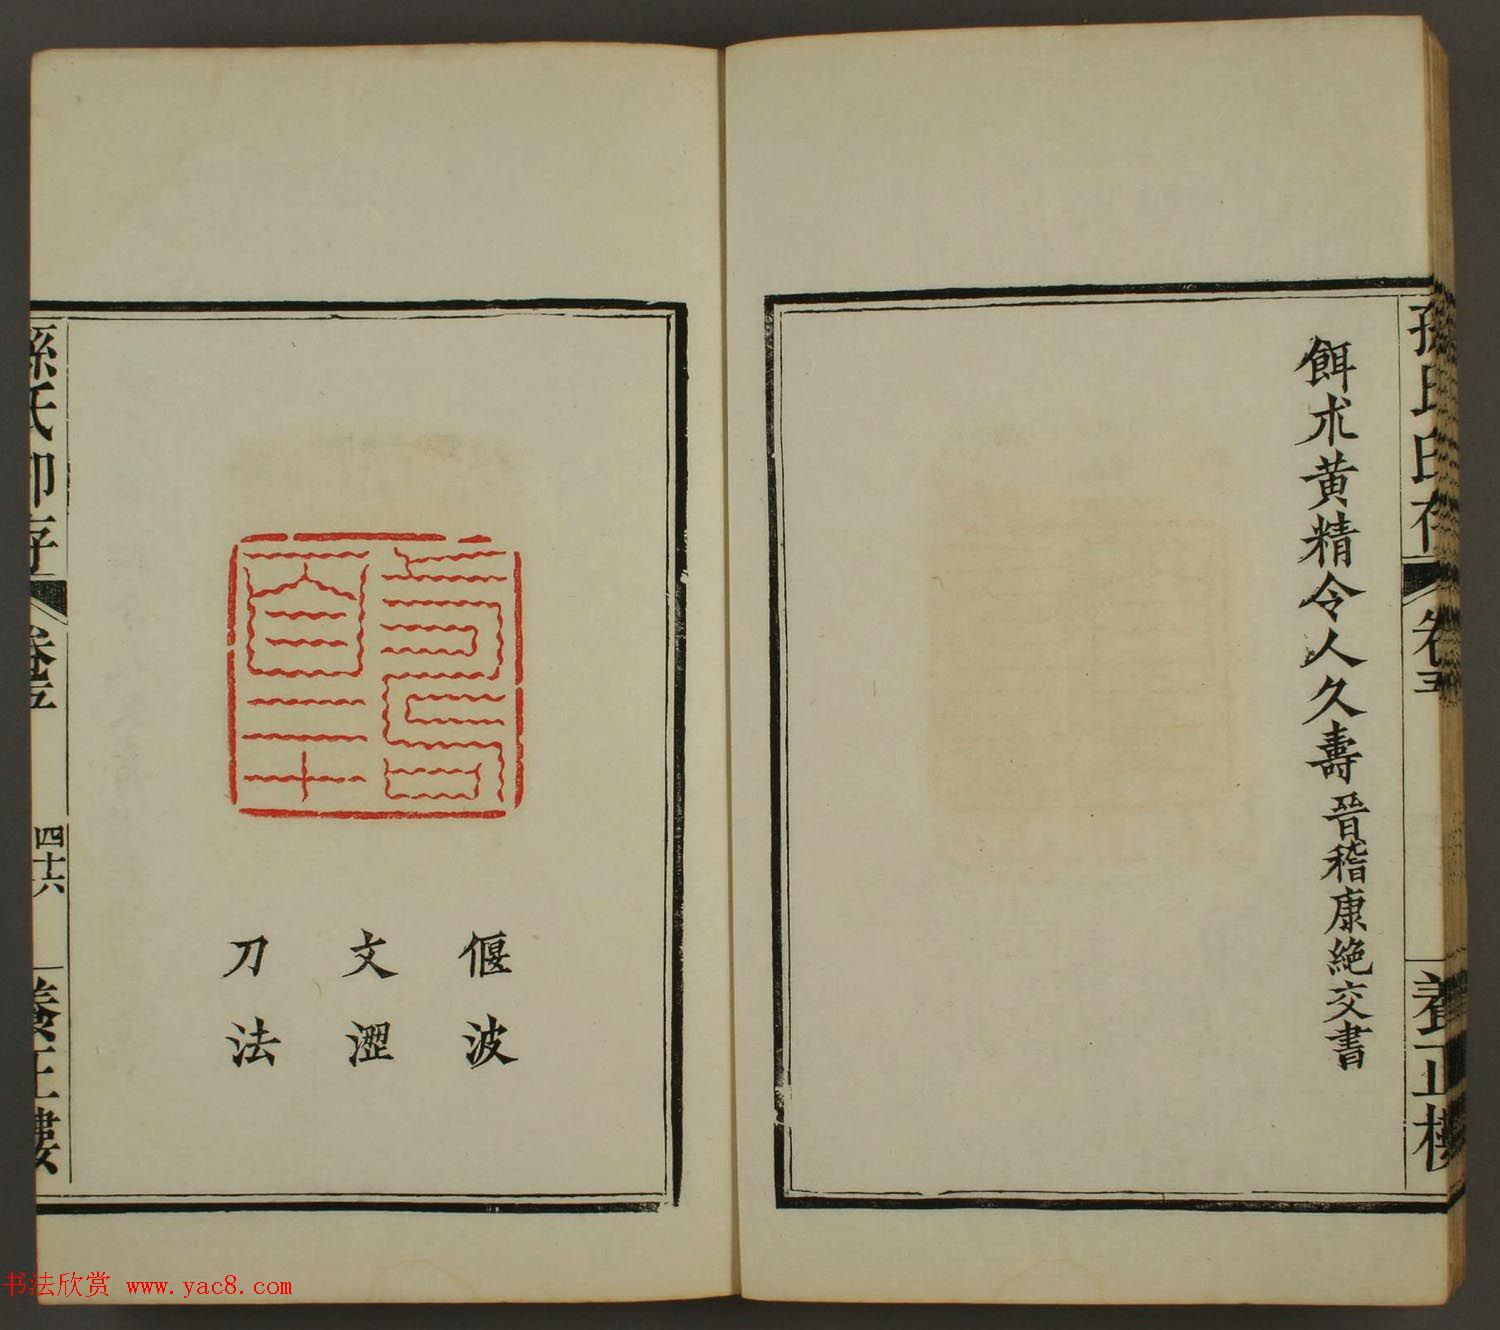 孫氏印存
卷五
養正樓
餌朮黃精令人久壽晉稽康絕交書
偃波
文澀
刀法
孫氏印存
卷五
四十六
養正樓
书法欣赏 www.yac8.com